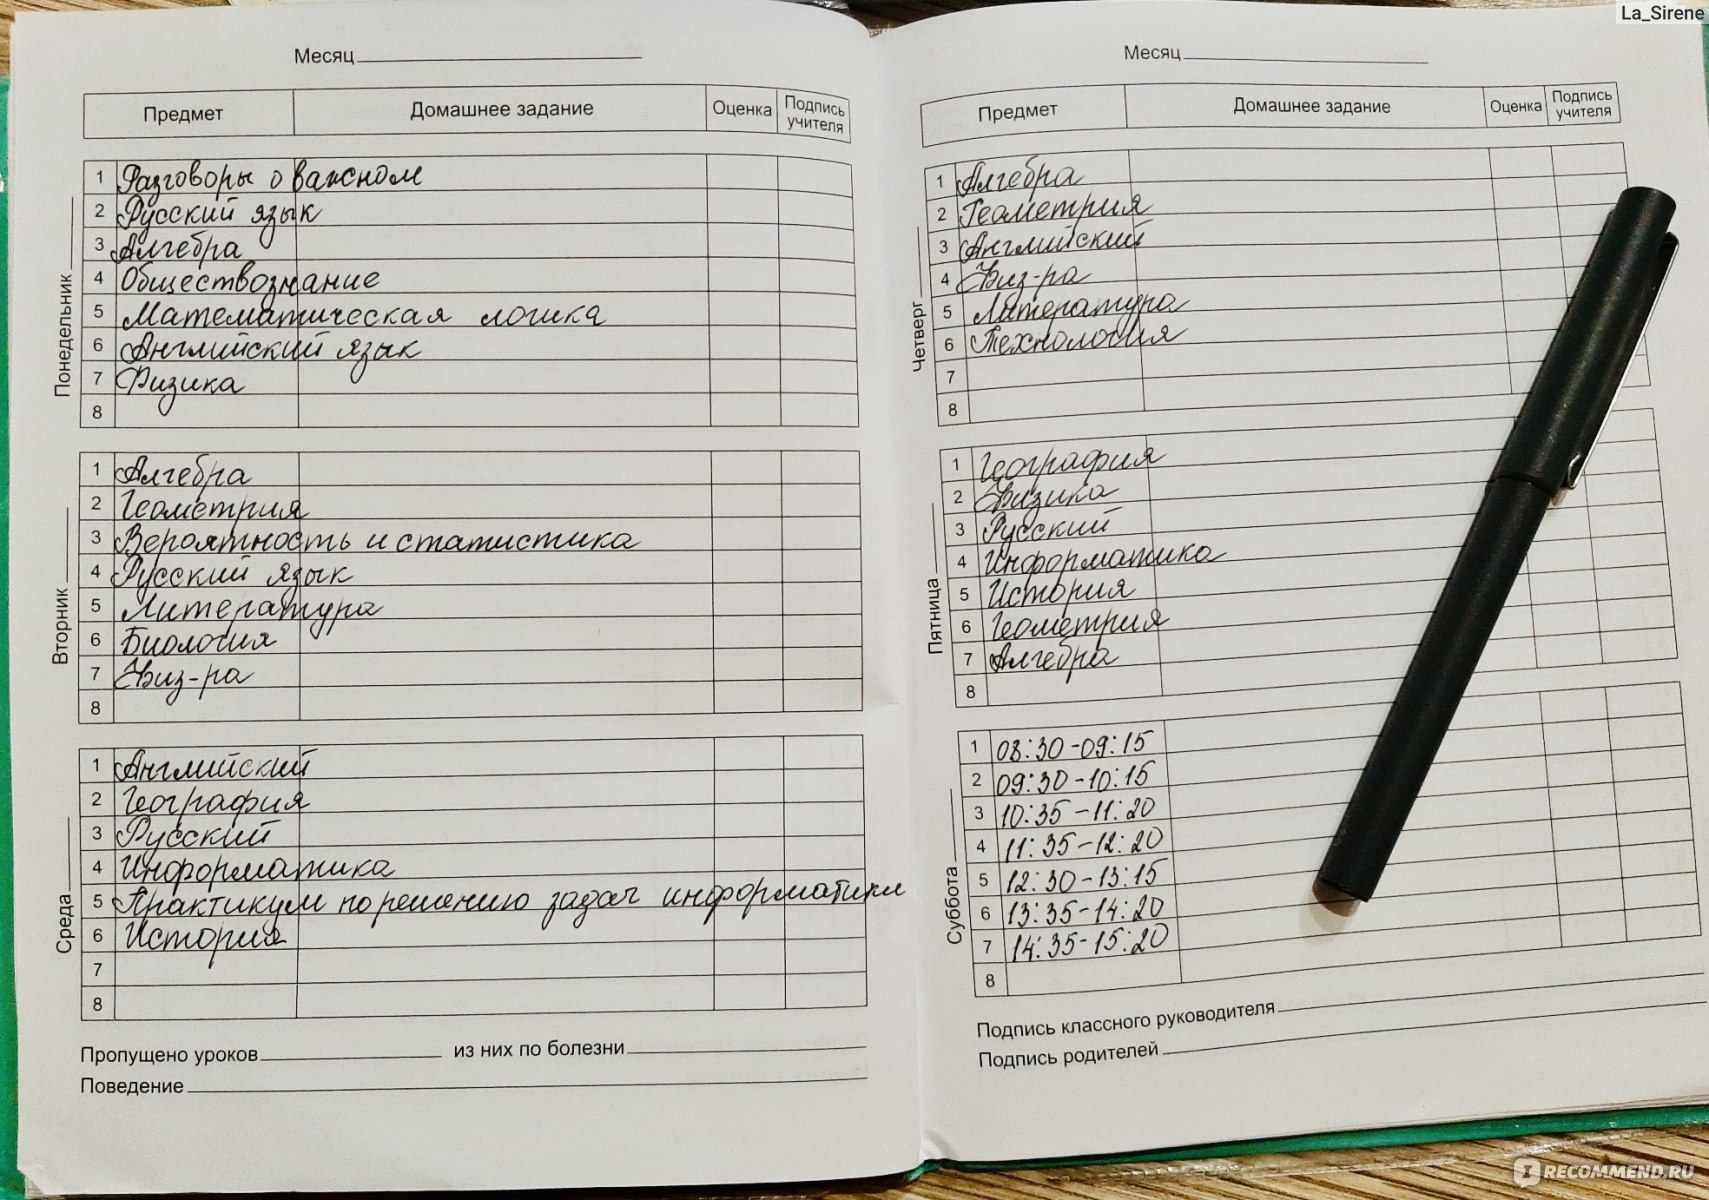 La_Sirene
Месяц
Предмет Домашнее задание Оценка Подпись учителя
Понедельник
1 Разговоры о важном
2 Русский язык
3 Алгебра
4 Обществознание
5 Математическая логика
6 Английский язык
7 Физика
8
Вторник
1 Алгебра
2 Геометрия
3 Вероятность и статистика
4 Русский язык
5 Литература
6 Биология
7 Физ-ра
8
Среда
1 Английский
2 География
3 Русский
4 Информатика
5 Практикум по решению задач информатики
6 История
7
8
Пропущено уроков из них по болезни
Поведение
Месяц
Предмет Домашнее задание Оценка Подпись учителя
Четверг
1 Алгебра
2 Геометрия
3 Английский
4 Физ-ра
5 Литература
6 Технология
7
8
Пятница
1 География
2 Физика
3 Русский
4 Информатика
5 История
6 Геометрия
7 Алгебра
8
Суббота
1 08:30-09:15
2 09:30-10:15
3 10:35-11:20
4 11:35-12:20
5 12:30-13:15
6 13:35-14:20
7 14:35-15:20
8
Подпись классного руководителя
Подпись родителей
RECOMMEND.RU